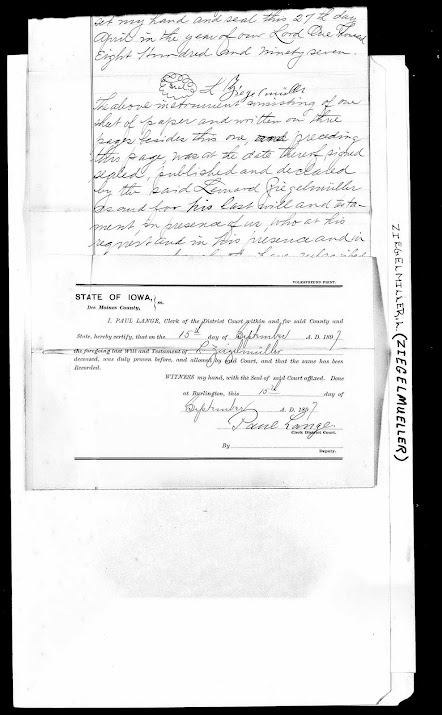 set my hand and seal this 27th day
April in the year of our Lord One Thousand
Eight Hundred and ninety seven.
L Ziegelmüller
The above instrument consisting of one
sheet of paper and written on three
pages besides this one, and preceding
this page, was at the date thereof signed
sealed, published and declared
by the said Lenard Ziegelmüller
as and for his last will and testa-
ment, in presence of us, who at his
request and in his presence and in
VOLKSFREUND PRINT.
STATE OF IOWA, } ss.
Des Moines County,
I, PAUL LANGE, Clerk of the District Court within and for said County and
State, hereby certify, that on the 15th day of September A. D. 1897
the foregoing last Will and Testament of L. Ziegelmüller
deceased, was duly proven before, and allowed by said Court, and that the same has been
Recorded.
WITNESS my hand, with the Seal of said Court affixed. Done
at Burlington, this 15th day of
September A. D. 1897
Paul Lange
Clerk District Court.
By
Deputy.
ZIEGELMILLER, L. (ZIEGELMUELLER)